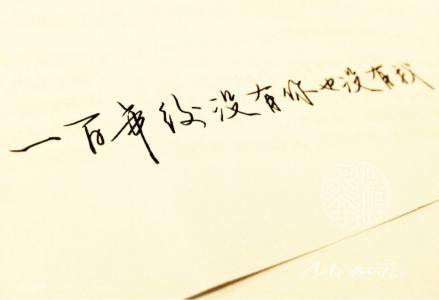 一百年后没有你也没有我
MiaoTu